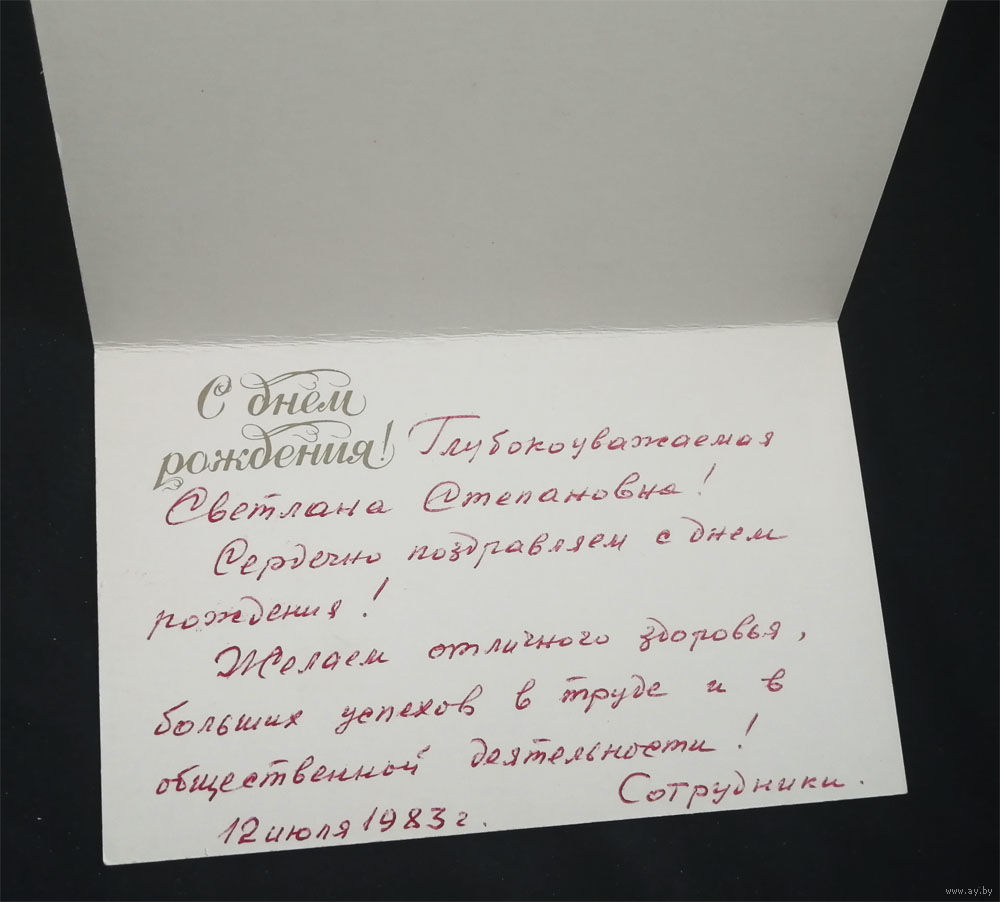 С днём
рождения! Глубокоуважаемая
Светлана Степановна!
Сердечно поздравляем с днем
рождения!
Желаем отличного здоровья,
больших успехов в труде и в
общественной деятельности!
Сотрудники.
12 июля 1983 г.
www.ay.by